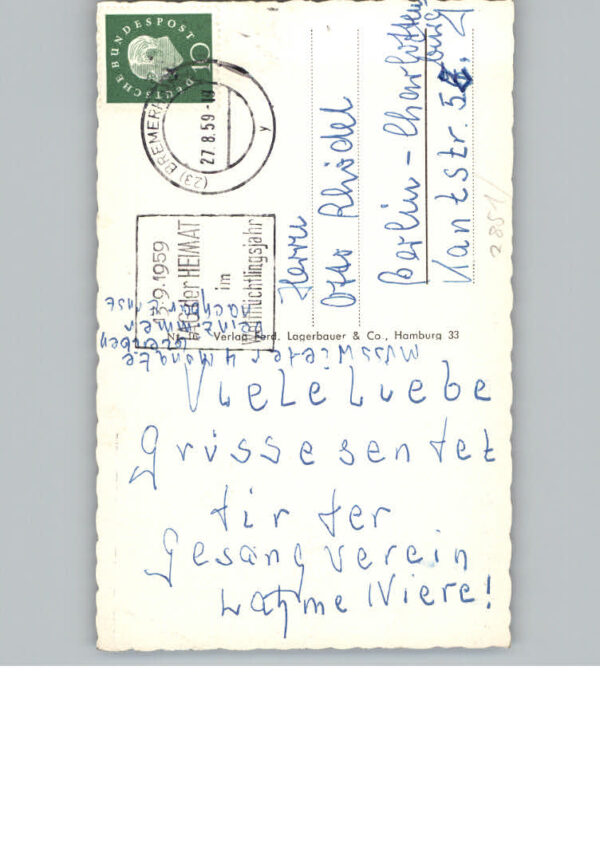 DEUTSCHE BUNDESPOST
10
(23) BREMERHAVEN
27.8.59
y
13.9.1959
TAG der HEIMAT
im
Weltflüchtlingsjahr
Herrn
Otto Rhödel
Berlin - Charlottenburg
Kantstr. 58
2851/
Verlag Ferd. Lagerbauer & Co., Hamburg 33
Muss Wieter 4 Monate
Heinz Immer
nachbar Ernst
Viele Liebe
Grüsse sentet
tir ter
Gesang verein
Lahme Niere!